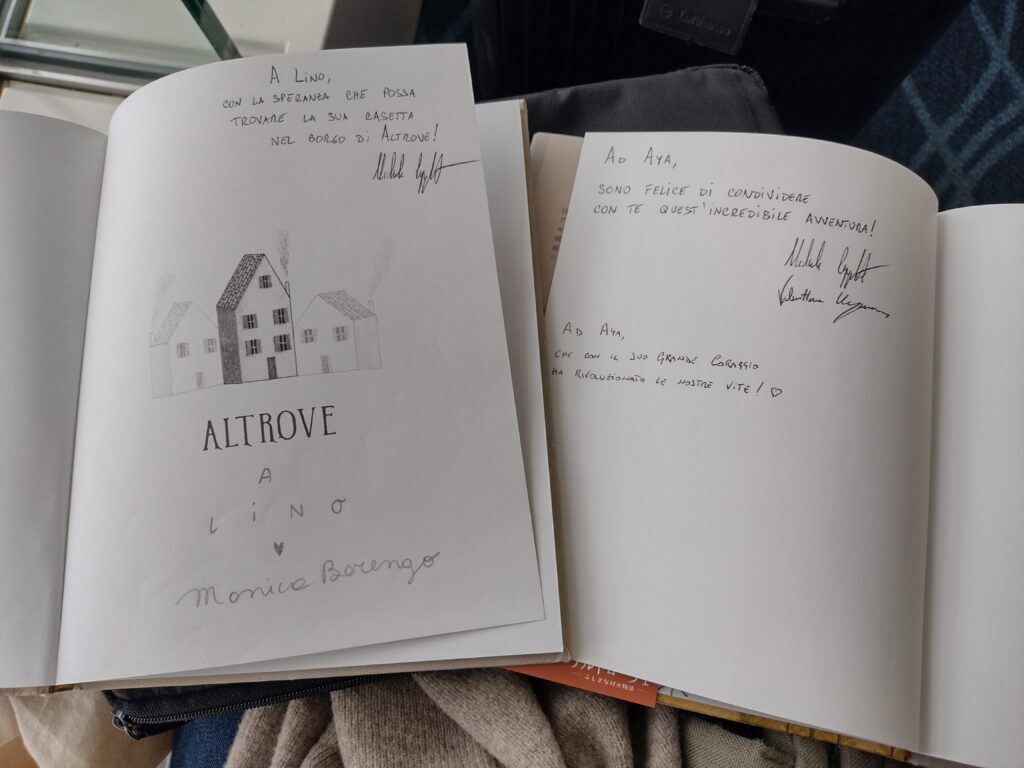 A LINO,
CON LA SPERANZA CHE POSSA
TROVARE LA SUA CASETTA
NEL BORGO DI ALTROVE!
ALTROVE
A
LINO
♥
Monica Barengo
AD AYA,
SONO FELICE DI CONDIVIDERE
CON TE QUEST'INCREDIBILE AVVENTURA!
AD AYA,
CHE CON IL SUO GRANDE CORAGGIO
HA RIVOLUZIONATO LE NOSTRE VITE! ♡